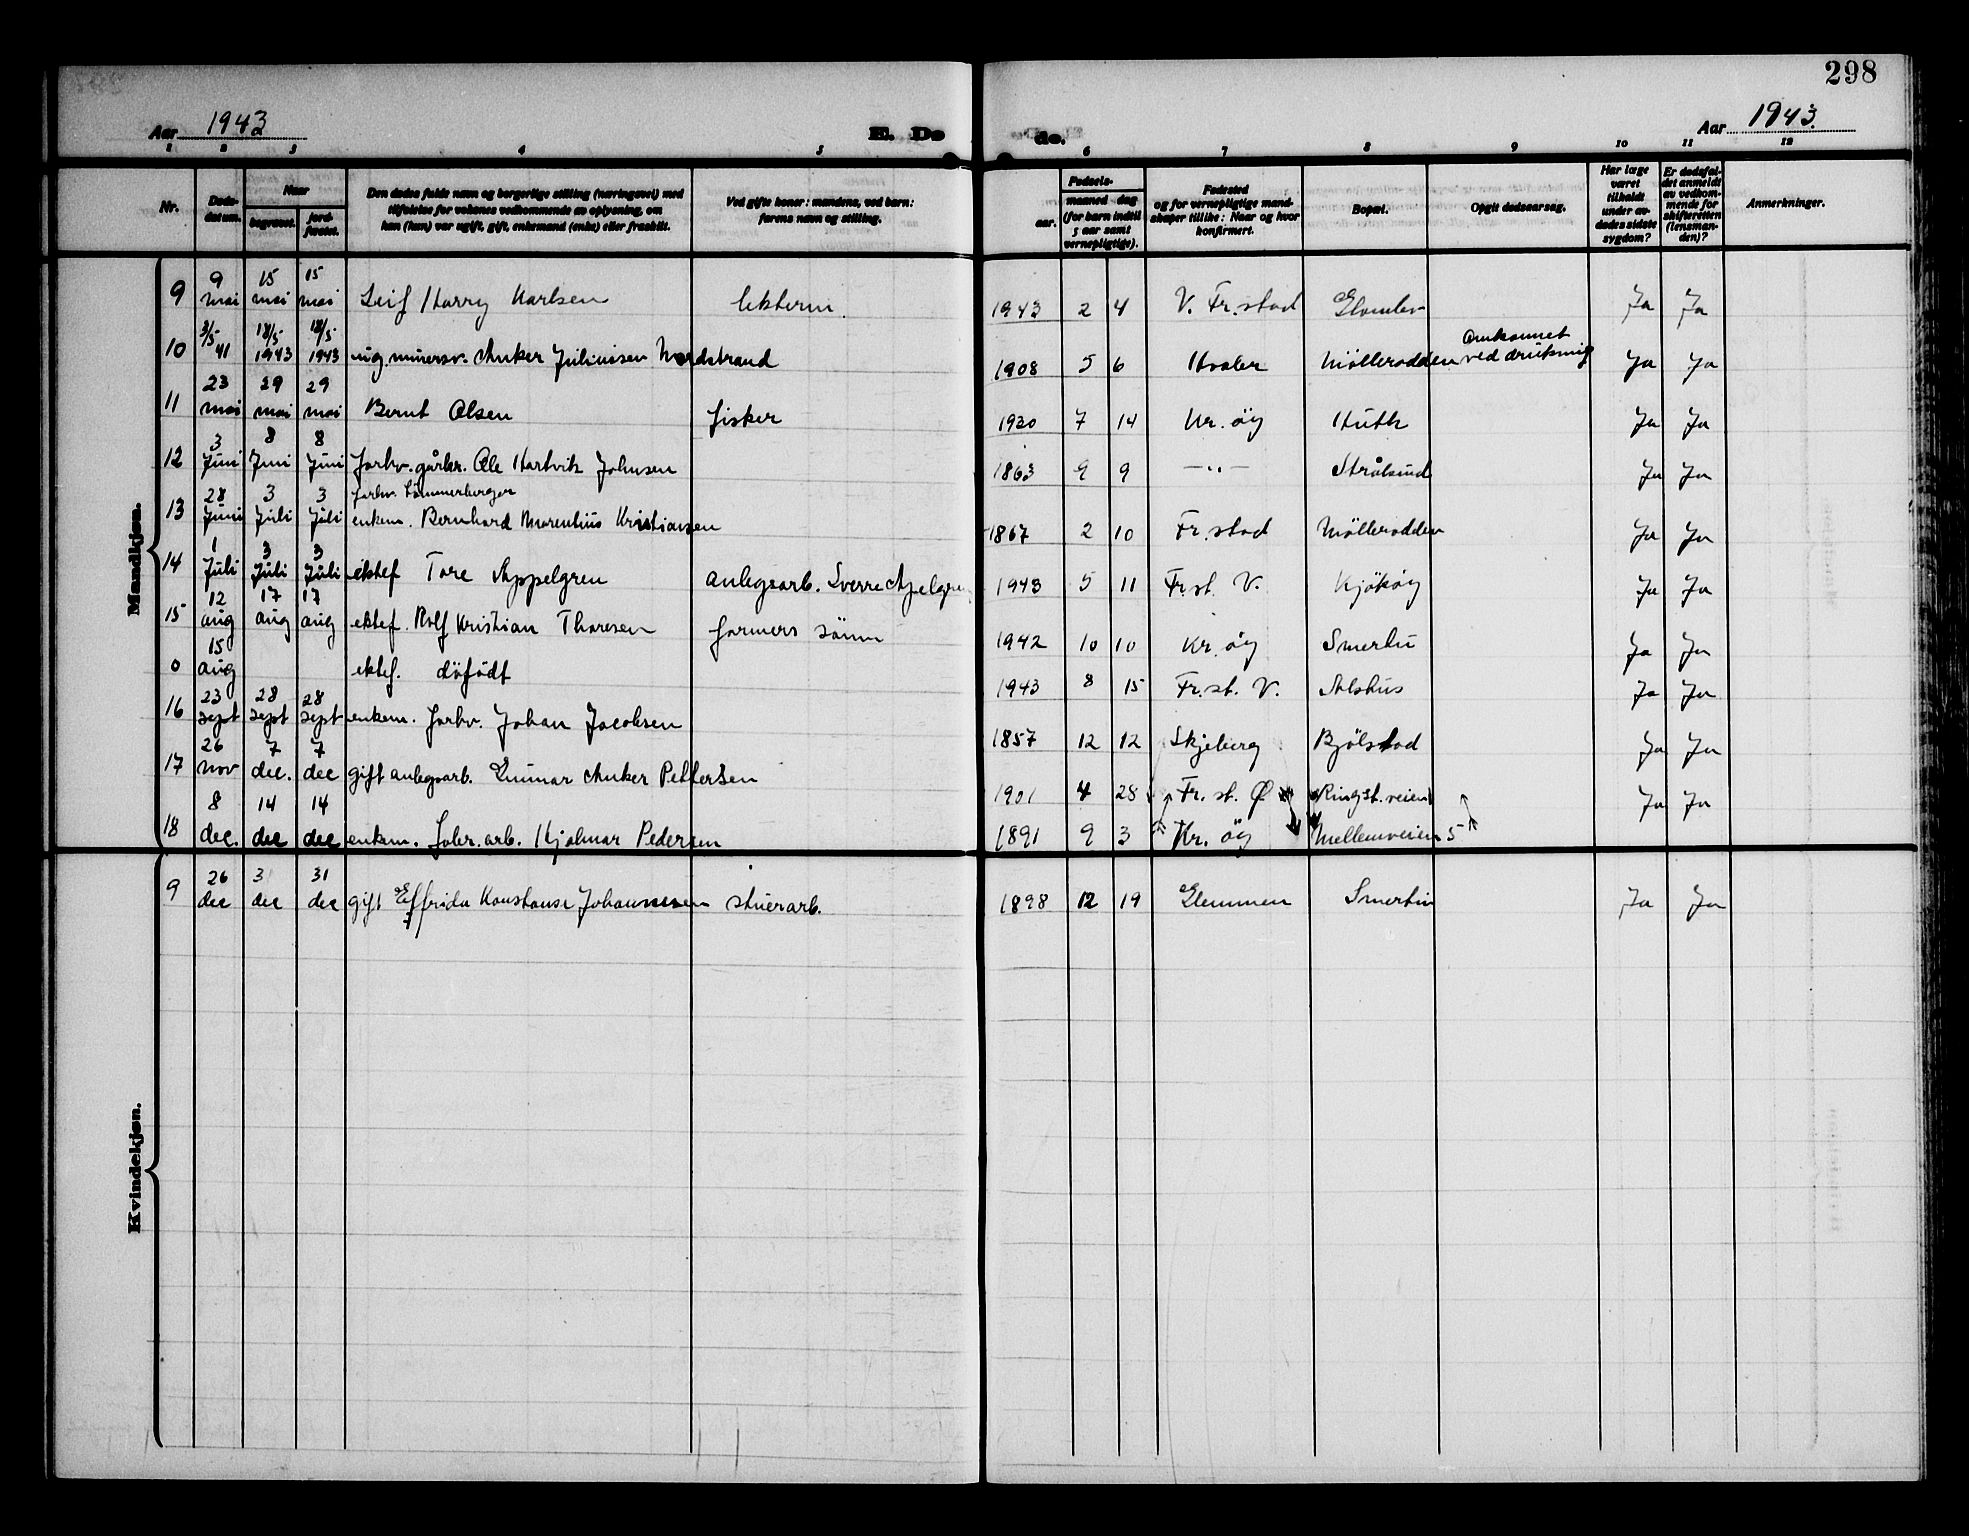 298
Aar 1943 E. Dø
de. Aar 1943.
1 2 3 4 5 6 7 8 9 10 11 12
Nr.
Døds-
datum.
Naar
begravet.
jord-
fæstet.
Den dødes fulde navn og borgerlige stilling (næringsvei) med
tilføielse for voksnes vedkommende av oplysning, om
han (hun) var ugift, gift, enkemand (enke) eller fraskilt.
Ved gifte koner: mandens, ved barn:
farens navn og stilling.
Fødsels-
aar.
maaned
dag
(for barn indtil
5 aar samt
vernepligtige).
Fødested
og for vernepligtige mand-
skaper tillike: Naar og hvor
konfirmert.
Bopæl.
Opgit dødsaarsag.
Har læge
været
tilkaldt
under av-
dødes sidste
sygdom?
Er dødsfal-
det anmeldt
av vedkom-
mende for
skifteretten
(lensman-
den)?
Anmerkninger.
Mandkjøn.
9 9 mai 15 mai 15 mai Leif Harry Karlsen 1943 2 4 V. Fr.stad Glombo Ja Ja
10 3/5 41 18/5 1943 18/5 1943 ug. murersv. Anker Juliussen Nordstrand 1908 5 6 Hvaler Möllerodden Omkommet
ved drukning Ja Ja
11 23 mai 29 mai 29 mai Bernt Olsen fisker 1920 7 14 Kr. öy Huth Ja Ja
12 3 Juni 8 Juni 8 Juni forhv. gårbr. Ole Hartvik Johnsen 1863 9 9 —„— Strålsund Ja Ja
13 28 Juni 3 Juli 3 Juli forhv. tömmerborger
enkem. Bernhard Marenbius Kristiansen 1867 2 10 Fr.stad Möllerodden Ja Ja
14 1 Juli 3 Juli 3 Juli ektef Tore Appelgren anlegsarb. Sverre Apelgren 1943 5 11 Fr.st. V. Kjököy Ja Ja
15 12 aug 17 aug 17 aug ektef. Rolf Kristian Thoresen formers sönn 1942 10 10 Kr. öy Smertu Ja Ja
0 15 aug ektef. döfödt 1943 8 15 Fr.st. V. Alshus Ja Ja
16 23 sept 28 sept 28 sept enkem. forhv. Johan Jacobsen 1857 12 12 Skjeberg Bjölstad Ja Ja
17 26 nov 7 dec. 7 dec gift anlegsarb. Gunnar Anker Pettersen 1901 4 28 Fr. st. Ø Ringst. veien Ja Ja
18 8 dec. 14 dec 14 dec enkem. fabr. arb. Hjalmar Pedersen 1891 9 3 Kr. öy Mellemveien 5
Kvindekjøn.
9 26 dec 31 dec 31 dec gift Elfrida Konstanse Johannessen stuerarb. 1898 12 19 Glemmen Smertu Ja Ja